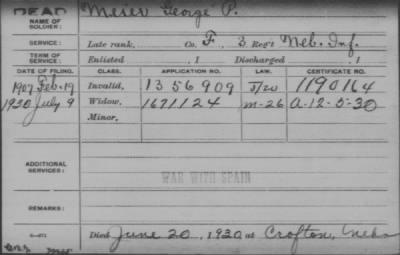 DEAD
NAME OF SOLDIER: Meier George P.
SERVICE: Late rank, Co. F, 3 Reg't Neb. Inf.
TERM OF SERVICE: Enlisted , 1 Discharged , 1
DATE OF FILING. CLASS. APPLICATION NO. LAW. CERTIFICATE NO.
1907 Feb. 19 Invalid, 1356909 1190164
1920 July 9 Widow, 1671124 m-26 A-12-5-30
Minor,
ADDITIONAL SERVICES:
WAR WITH SPAIN
REMARKS:
Died June 20, 1920 at Crofton, Nebr